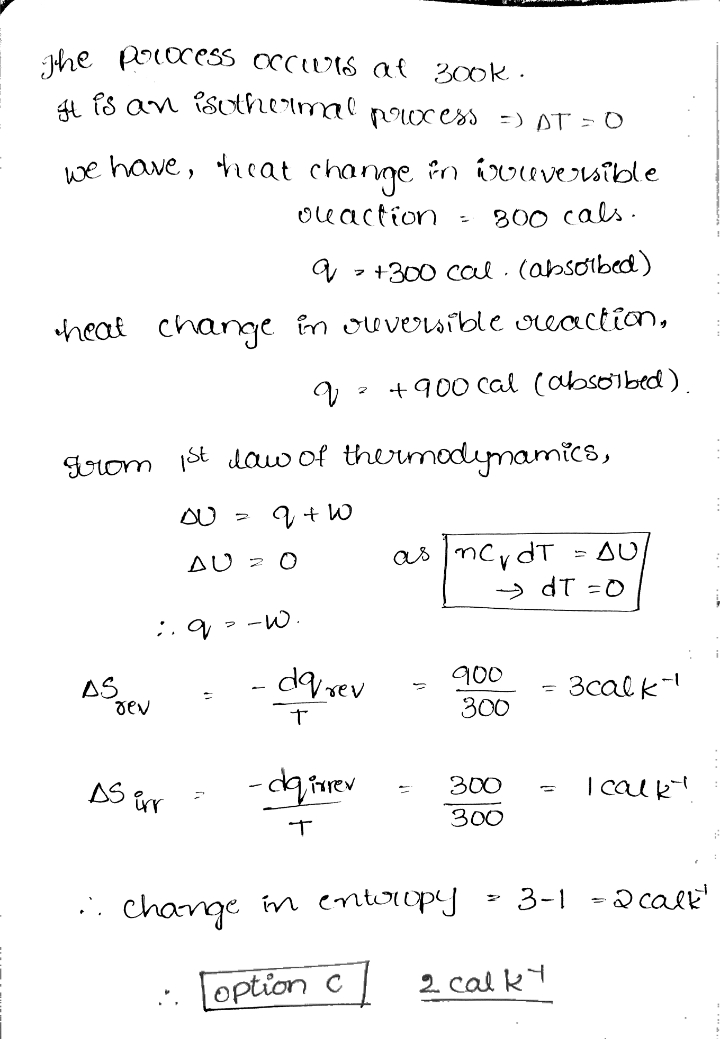 The process occurs at 300k.
It is an isothermal process => ΔT = 0
we have, heat change in irreversible
reaction = 300 cals.
q = +300 cal. (absorbed)
heat change in reversible reaction,
q = +900 cal (absorbed).
From 1st law of thermodynamics,
ΔU = q + W
ΔU = 0 as nCv dT = ΔU
→ dT = 0
∴ q = -W.
ΔS rev = - dq rev / T = 900 / 300 = 3 cal k⁻¹
ΔS irr = - dq irrev / T = 300 / 300 = 1 cal k⁻¹
∴ change in entropy = 3-1 = 2 cal k⁻¹
∴ option c 2 cal k⁻¹